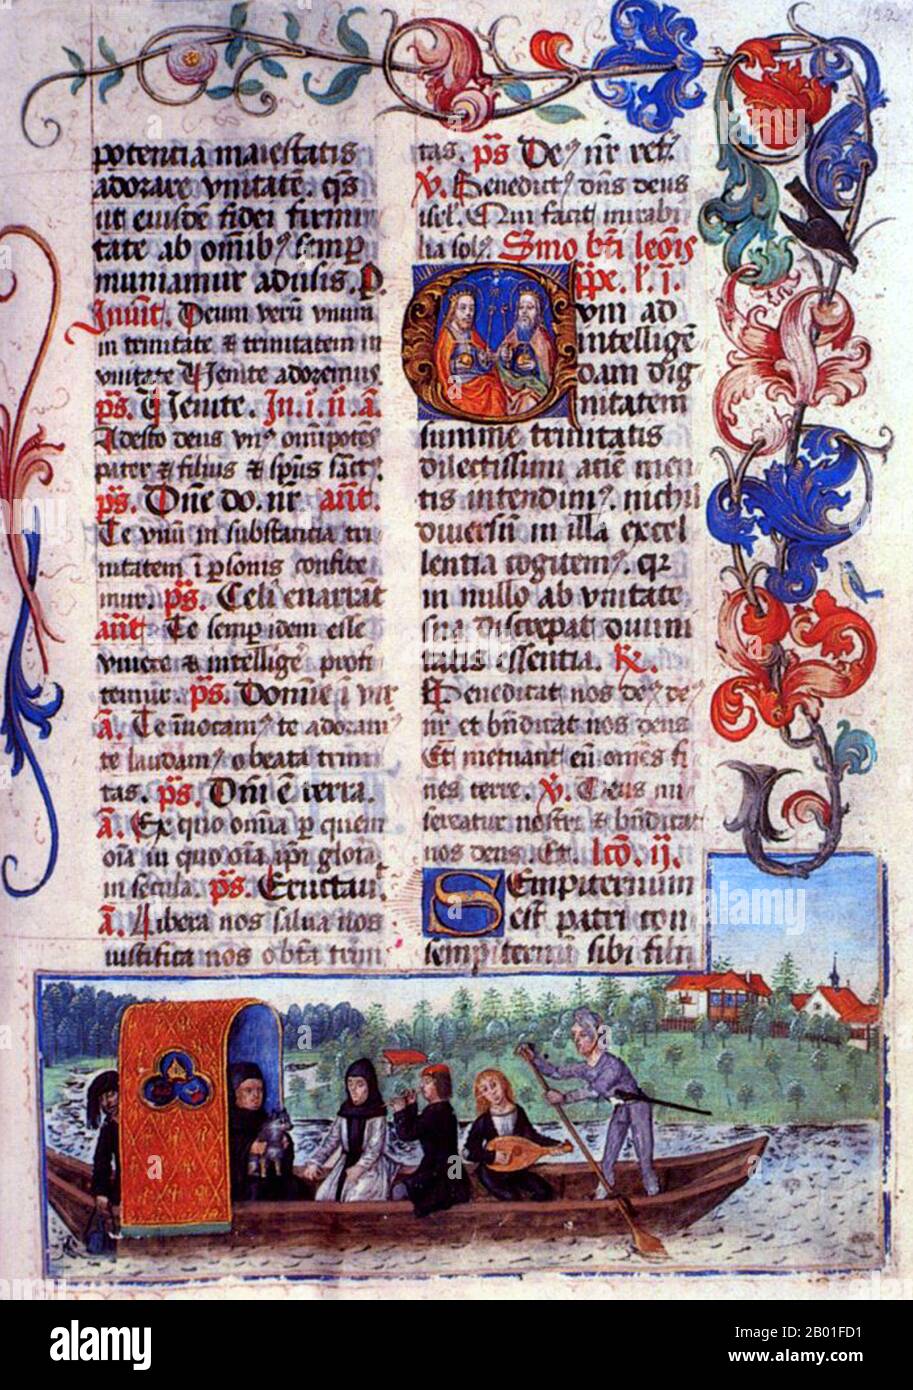 potentia maiestatis
adorare vnitatē. qs̄
ut eiusdē fidei firmi
tate ab om̄ibꝰ semp
muniamur aduersis. P.
Inuit. Deum verū vnum
in trinitate & trinitatem in
vnitate Venite adoremus
ps. Venite. In. i. n. a.
Adesto deus vnꝰ om̄ipotēs
pater & filius & spūs sāctꝰ
ps. Dn̄e do. nr̄ ant.
Te vnū in substantia tri
nitatem ī psonis confite
mur. ps. Celi enarrāt
ant Te semp idem esse
viuere & intelligē profi
temur. ps. Domīe ī vir
a. Te īuocamꝰ te adoramꝰ
te laudamꝰ o beata trini
tas. ps. Dn̄i ē terra.
a. Ex quo om̄ia p quem
oīa in quo oīa ipī gloīa
in secula. ps. Eructauit
a. Libera nos salua nos
iustifica nos o btā trini
tas. ps Deꝰ nr̄ ref.
v. Benedictꝰ dn̄s deus
isrl. Qui facit mirabi
lia solꝰ Smo bti leōis
ppe. l. i.
vm ad
intelligē
dam dig
nitatem
summe trinitatis
dilectissimi aciē men
tis intendimꝰ. nichil
diuersū in illa excel
lentia cogitemꝰ. qr
in nullo ab vnitate
sua discrepat diuini
tatis essentia. R.
Benedicat nos deꝰ deꝰ
nr̄ et bn̄dicat nos deus
Et metuant eū omēs fi
nes terre. v. Deus mi
sereatur nostri & bn̄dicat
nos deus. Et. lco. ii.
SEmpiternum
est patri con
sempiternū sibi filiū
alamy
Image ID: 2B01FD1
www.alamy.com